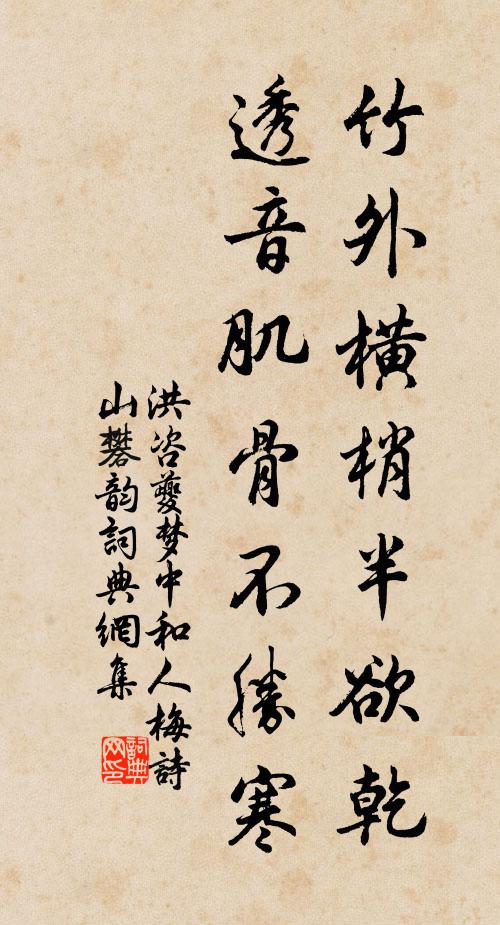 竹外橫梢半欲乾
透音肌骨不勝寒
洪咨夔梦中和人梅詩
山礬韵詞典網集
詞典
网印